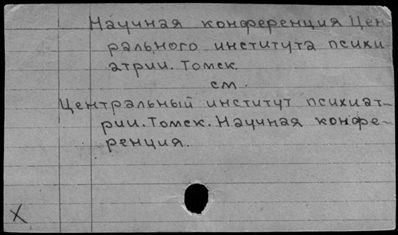 Научная конференция Цен
рального института психи
атрии. Томск.
см.
Центральный институт психиат-
рии. Томск. Научная конфе-
ренция.
X